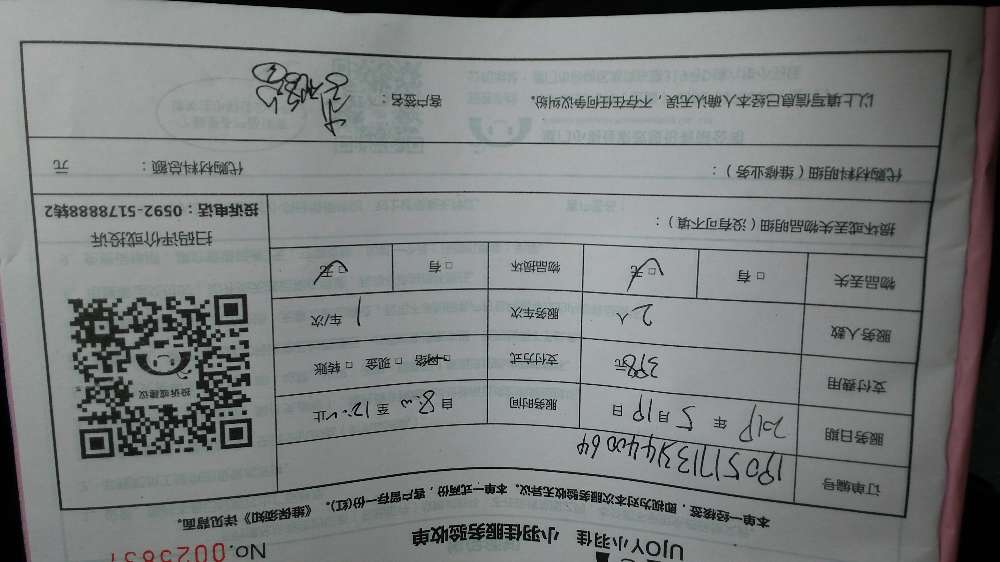 UJOY小羽佳 小羽佳服务验收单
No. 0025637
本单一经接签，即视为对本次服务验收无异议。本单一式两份，客户留存一份(红)。《维保须知》详见背面。
订单编号 190517113144400064
服务日期 2019 年 5 月 19 日 服务时间 自 8:00 至 12:00 止
支付费用 398元 支付方式 □ 网络 □ 现金 □ 转账
服务人数 2人 服务车次 1 车/次
物品丢失 □ 有 □ 无 物品损坏 □ 有 □ 无
投诉或建议
扫码评价或投诉
投诉电话：0592-5178888转2
损坏或丢失物品明细（没有可不填）：
代购材料明细（维修业务）： 代购材料总额： 元
以上填写信息已经本人确认无误，不存在任何争议纠纷。 客户签名：